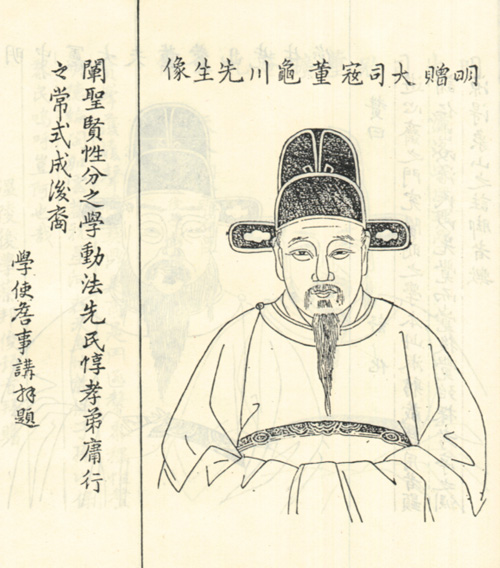 明贈大司寇董龜川先生像
闡聖賢性分之學動法先民惇孝弟庸行
之常式成後裔
學使詹事講拜題